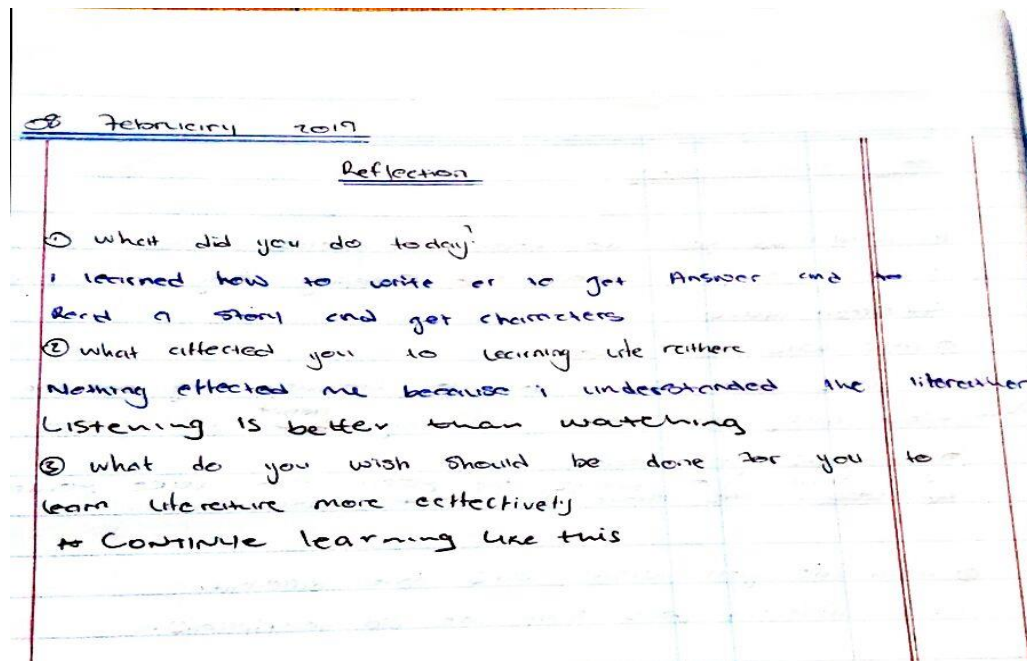 08 February 2019
Reflection
① What did you do today?
I learned how to write or to get Answer and to
Read a story and get characters
② What affected you to learning
Nothing effected me because i understanded the
Listening is better than watching
③ What do you wish should be done for you to
learn literature more effectively
Continue learning like this